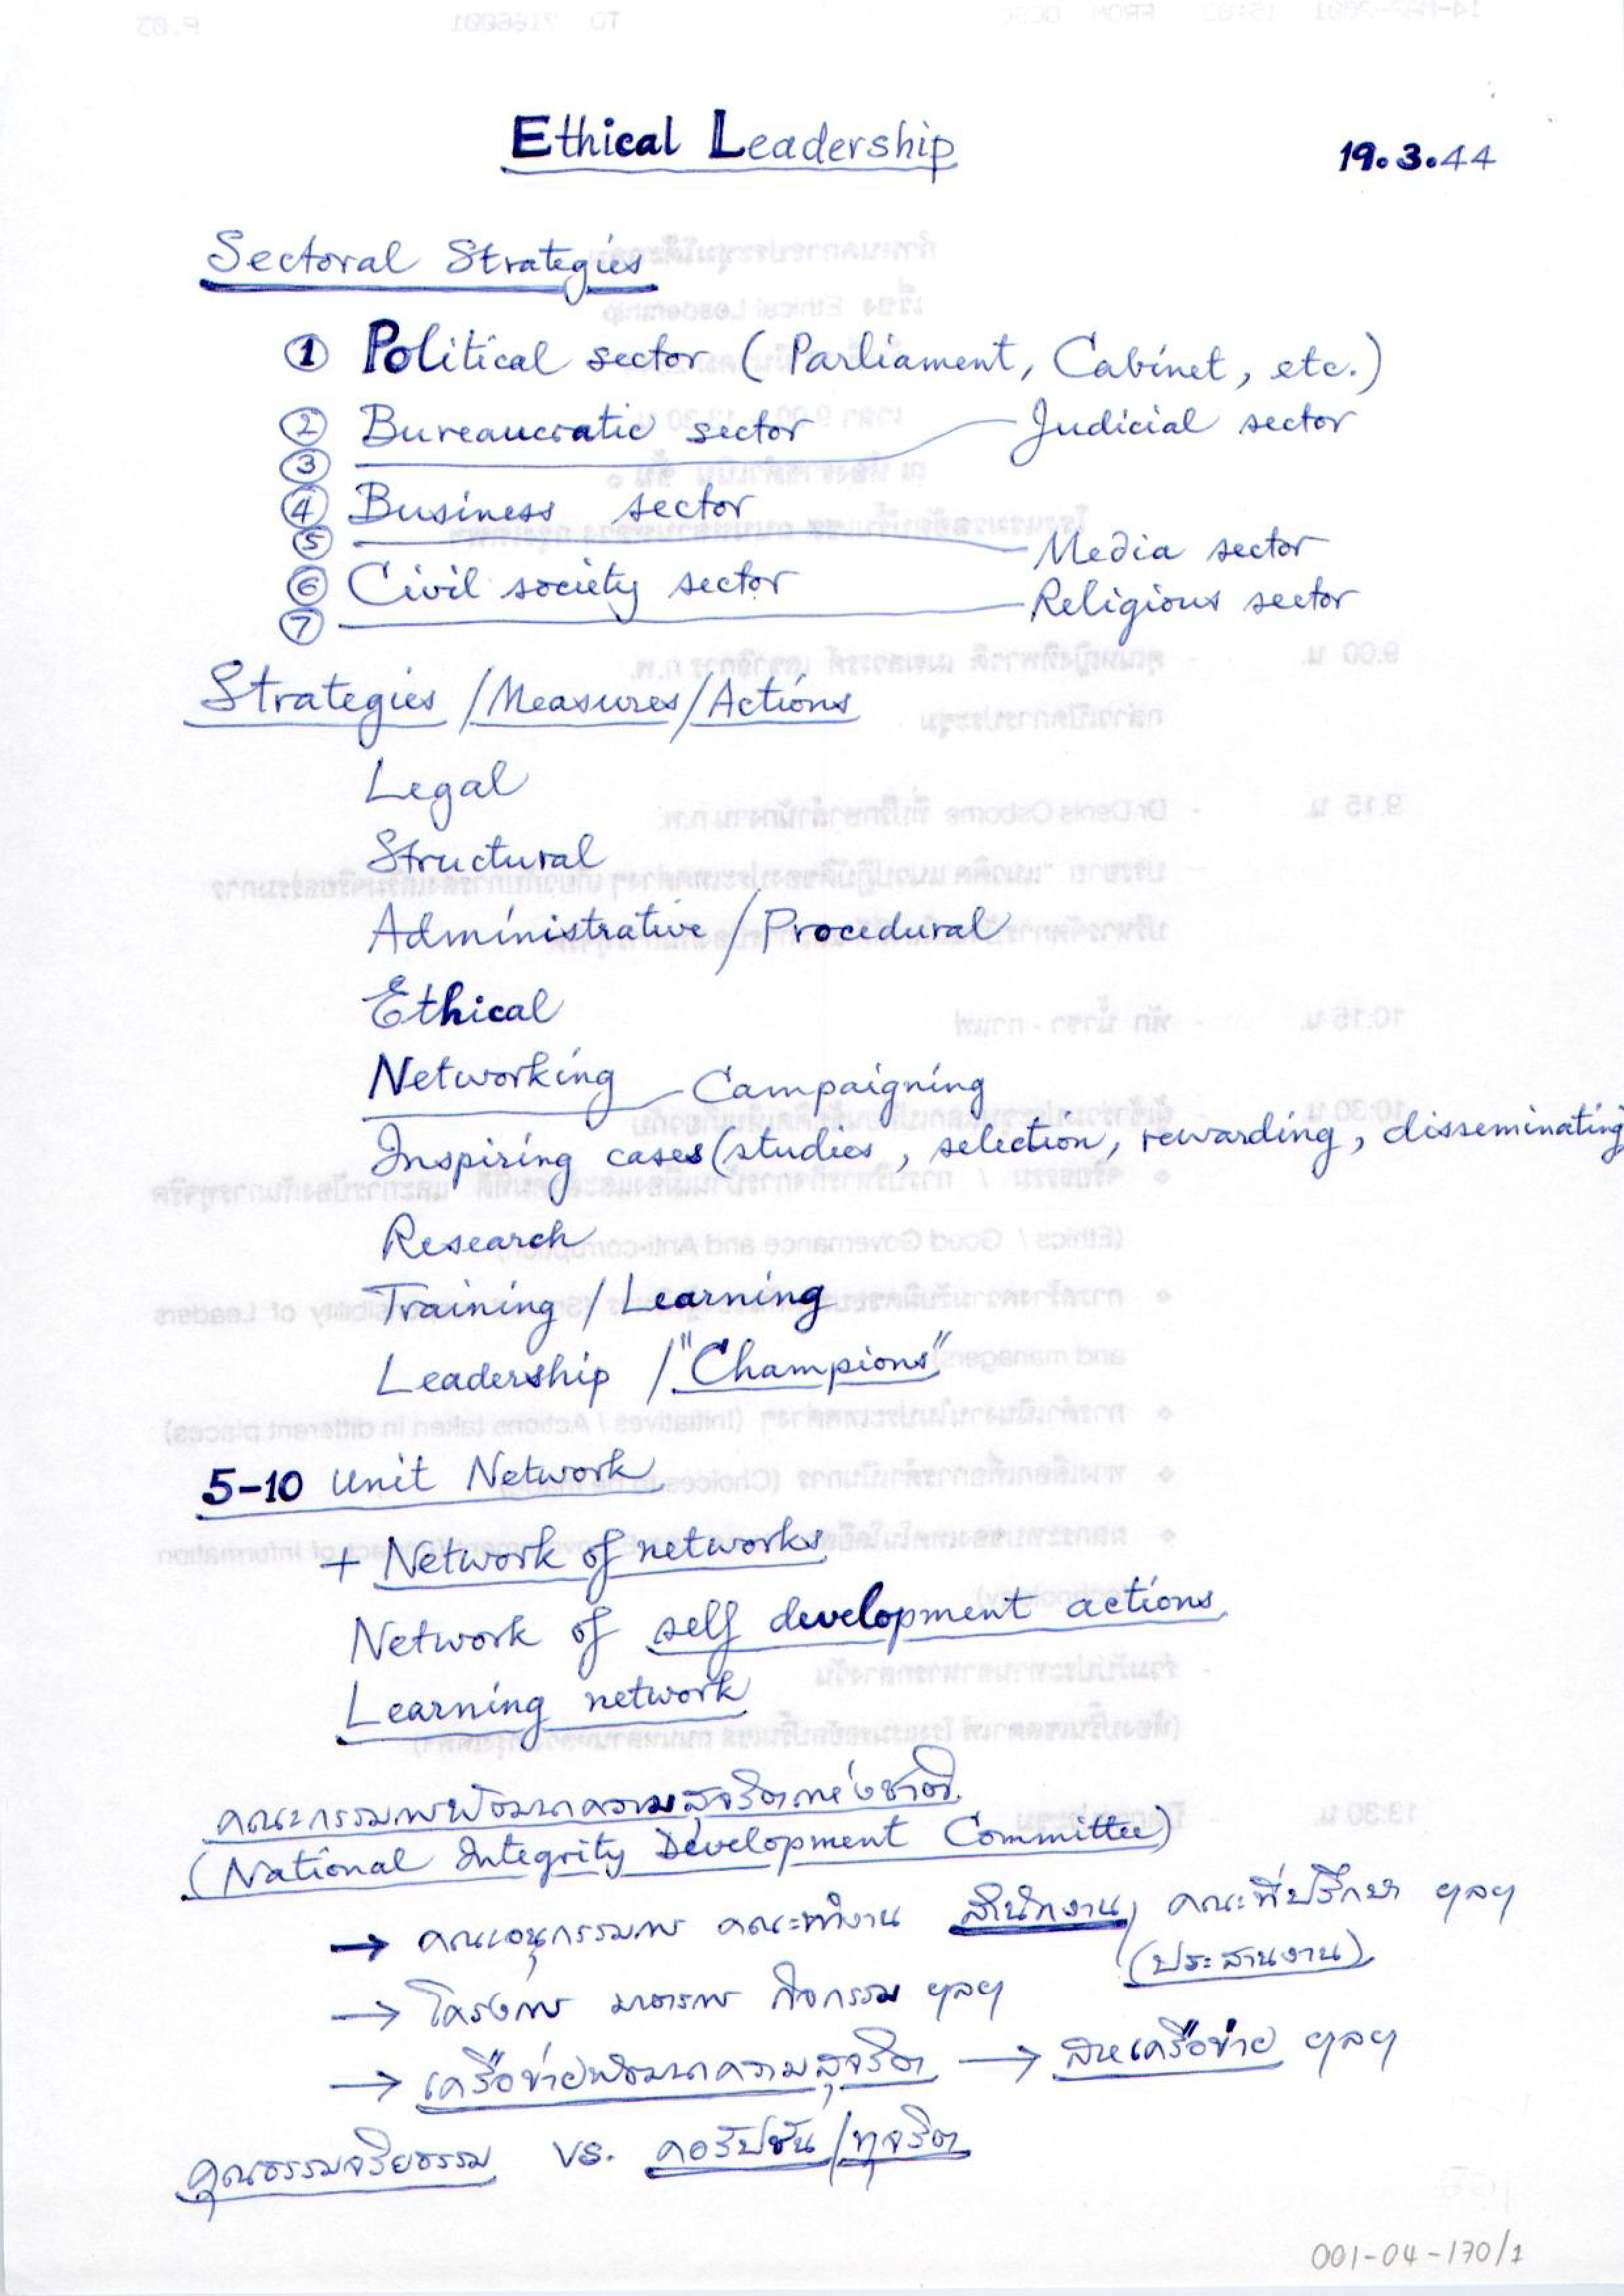 Ethical Leadership
19.3.44
Sectoral Strategies
① Political sector (Parliament, Cabinet, etc.)
② Bureaucratic sector
③ Judicial sector
④ Business sector
⑤ Media sector
⑥ Civil society sector
⑦ Religious sector
Strategies / Measures / Actions
Legal
Structural
Administrative / Procedural
Ethical
Networking
Campaigning
Inspiring cases (studies, selection, rewarding, disseminating
Research
Training / Learning
Leadership / "Champions"
5-10 Unit Network
+ Network of networks
Network of self development actions
Learning network
คณะกรรมการพัฒนาความสุจริตแห่งชาติ
(National Integrity Development Committee)
→ คณะอนุกรรมการ คณะทำงาน สำนักงาน, คณะที่ปรึกษา ฯลฯ
(ประสานงาน)
→ โครงการ มาตรการ กิจกรรม ฯลฯ
→ เครือข่ายพัฒนาความสุจริต → สหเครือข่าย ฯลฯ
คุณธรรมจริยธรรม vs. คอรัปชัน/ทุจริต
001-04-170/1